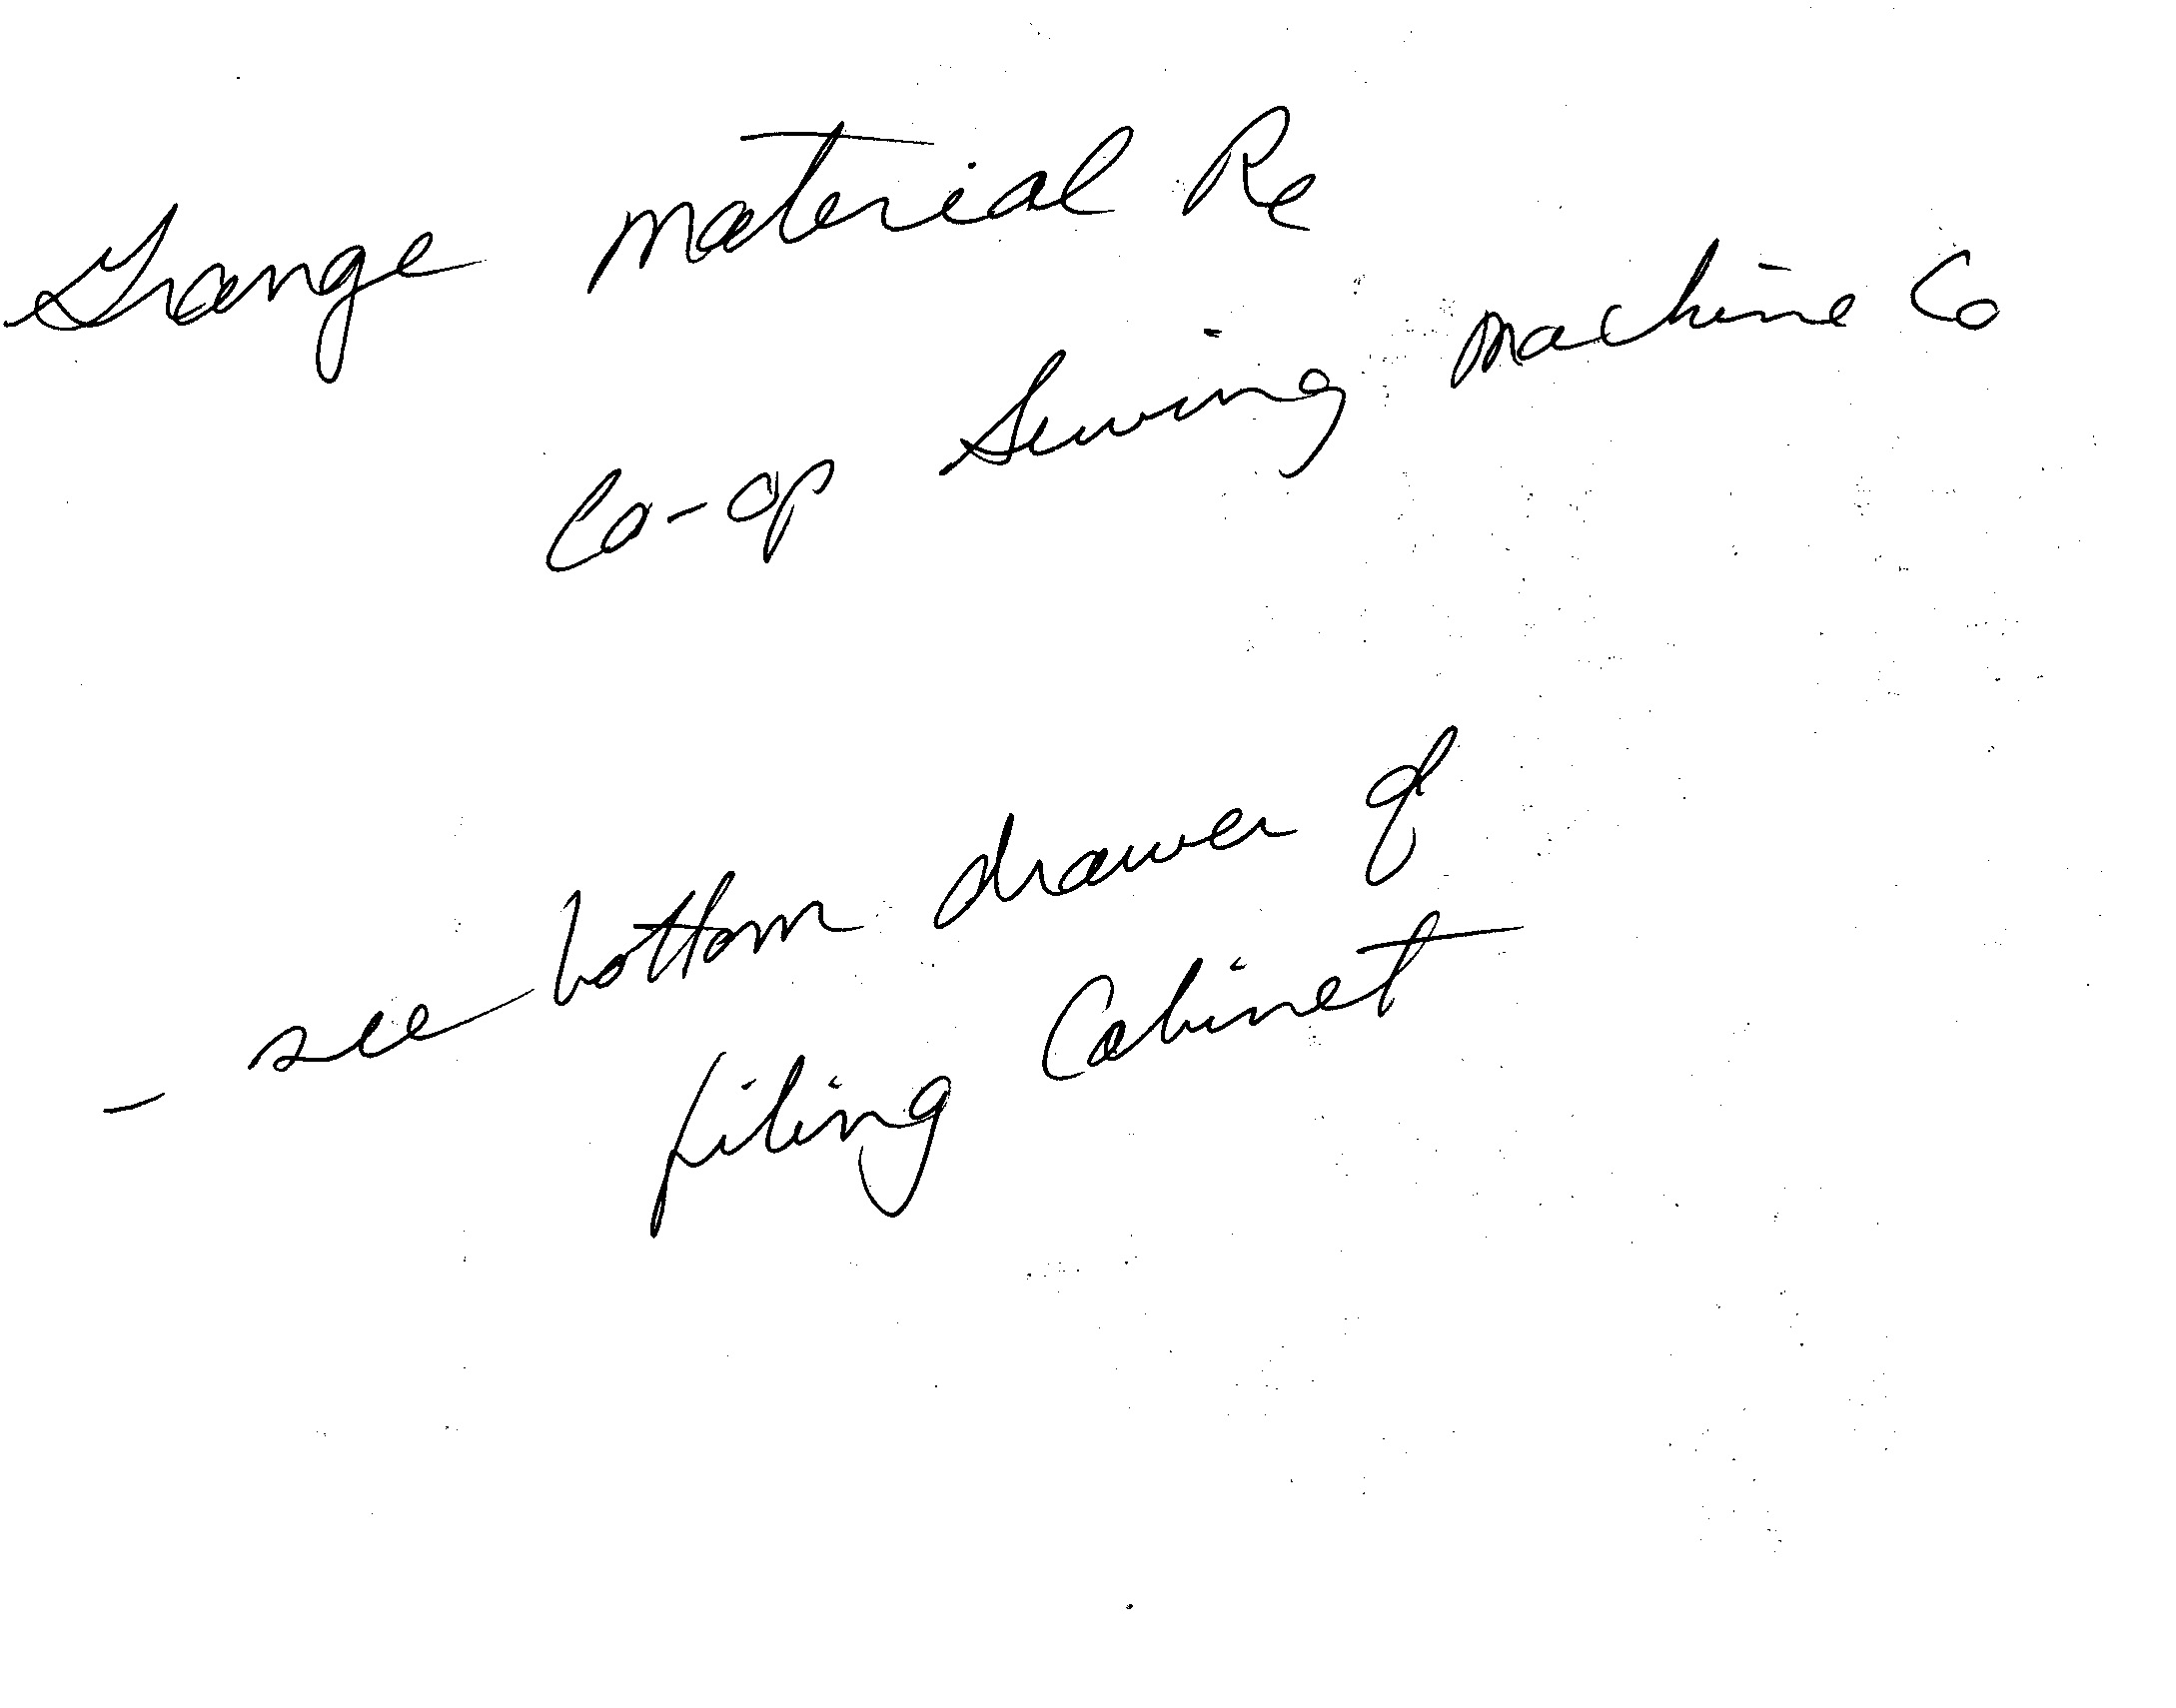 Grange Material Re
Co-op Sewing Machine Co
- see bottom drawer of
filing Cabinet